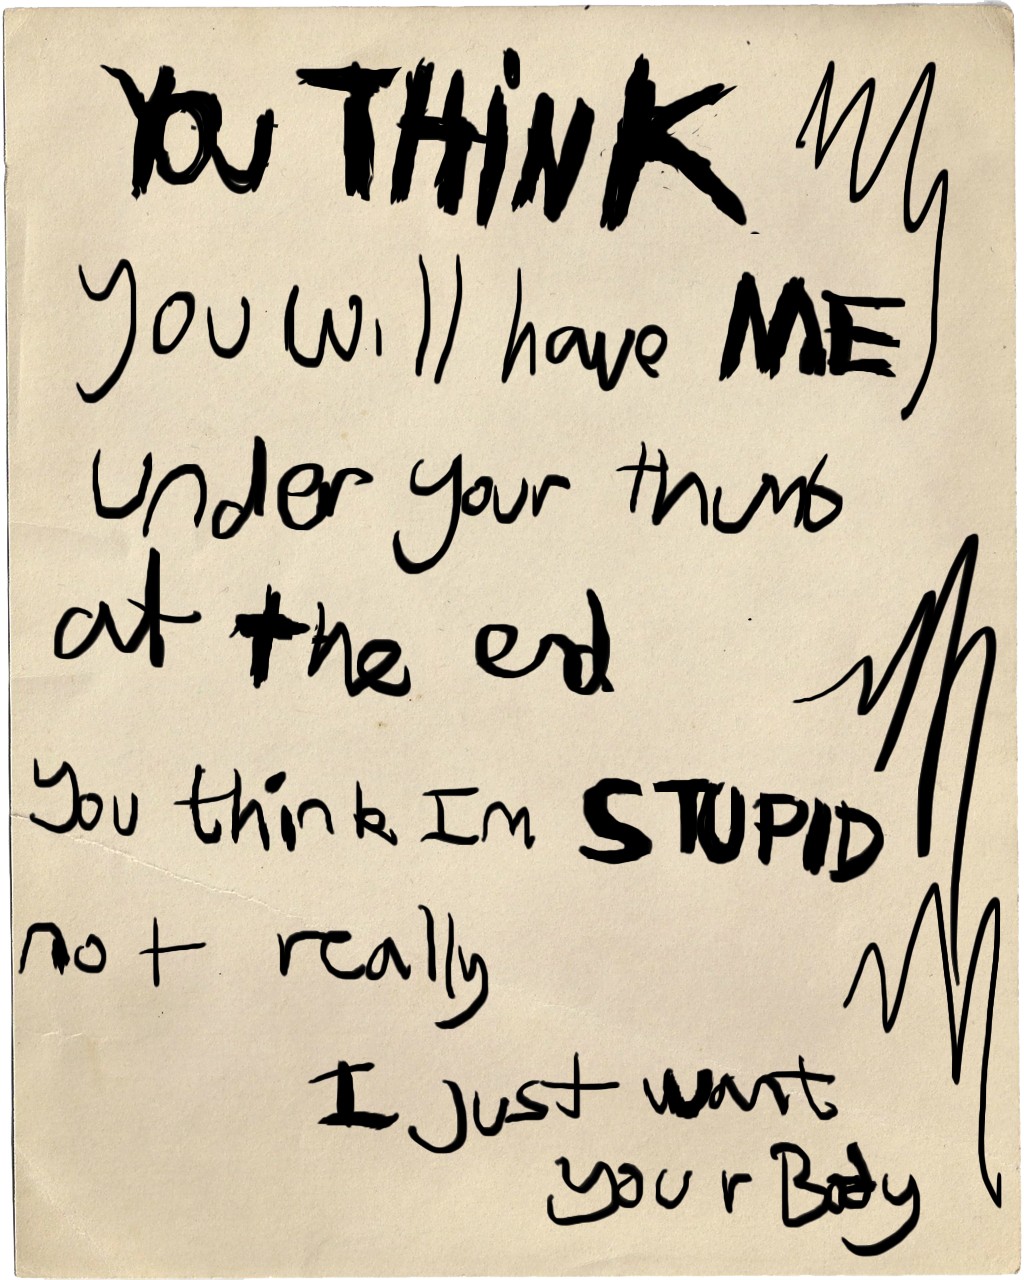 YOU THiNK
you will have ME
under your thumb
at the end
you think Im STUPID
not really
I just want
your Body